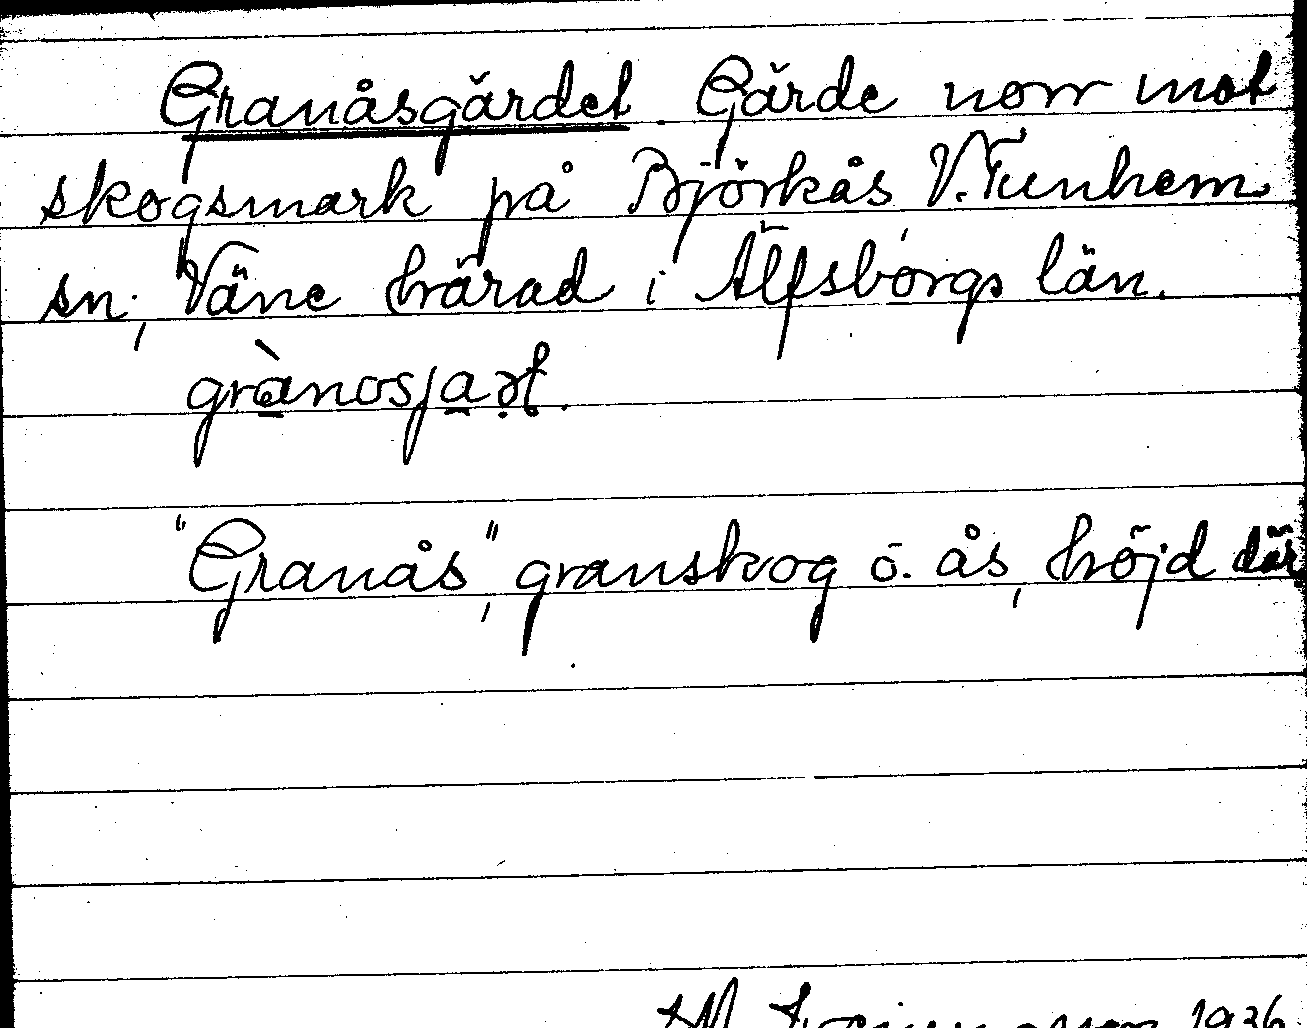 Granåsgärdet. Gärde norr mot
skogsmark på Björkås V. Tunhem
sn, Väne härad i Älfsborgs län.
grànosjaṛṭ.
"Granås", granskog o. ås, höjd där
1936